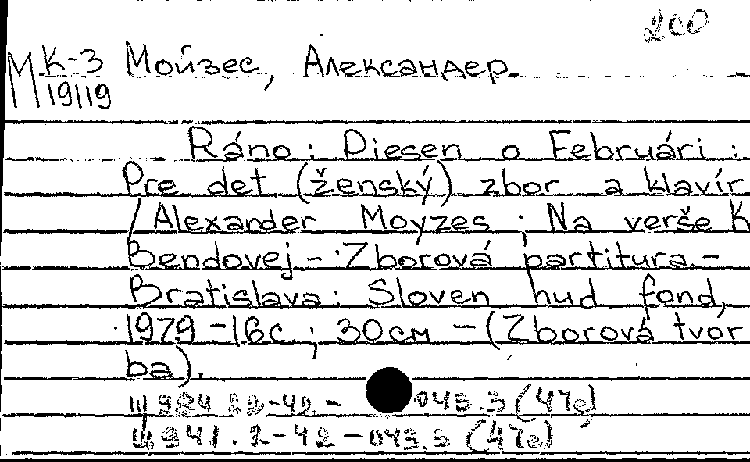 200
М К-3 Мойзес, Александер.
19119
Ráno: Piesen o Februári:
Pre det (ženský) zbor a klavír
/Alexander Moyzes. Na verše K
Bendovej - Zborová partitura. -
Bratislava: Sloven hud fond,
1979 - 16 с; 30 см - (Zborová tvor
ba).
Ш 2-42 - 043.3 (47e)
Ш 941.2-42-043.3 (47e)